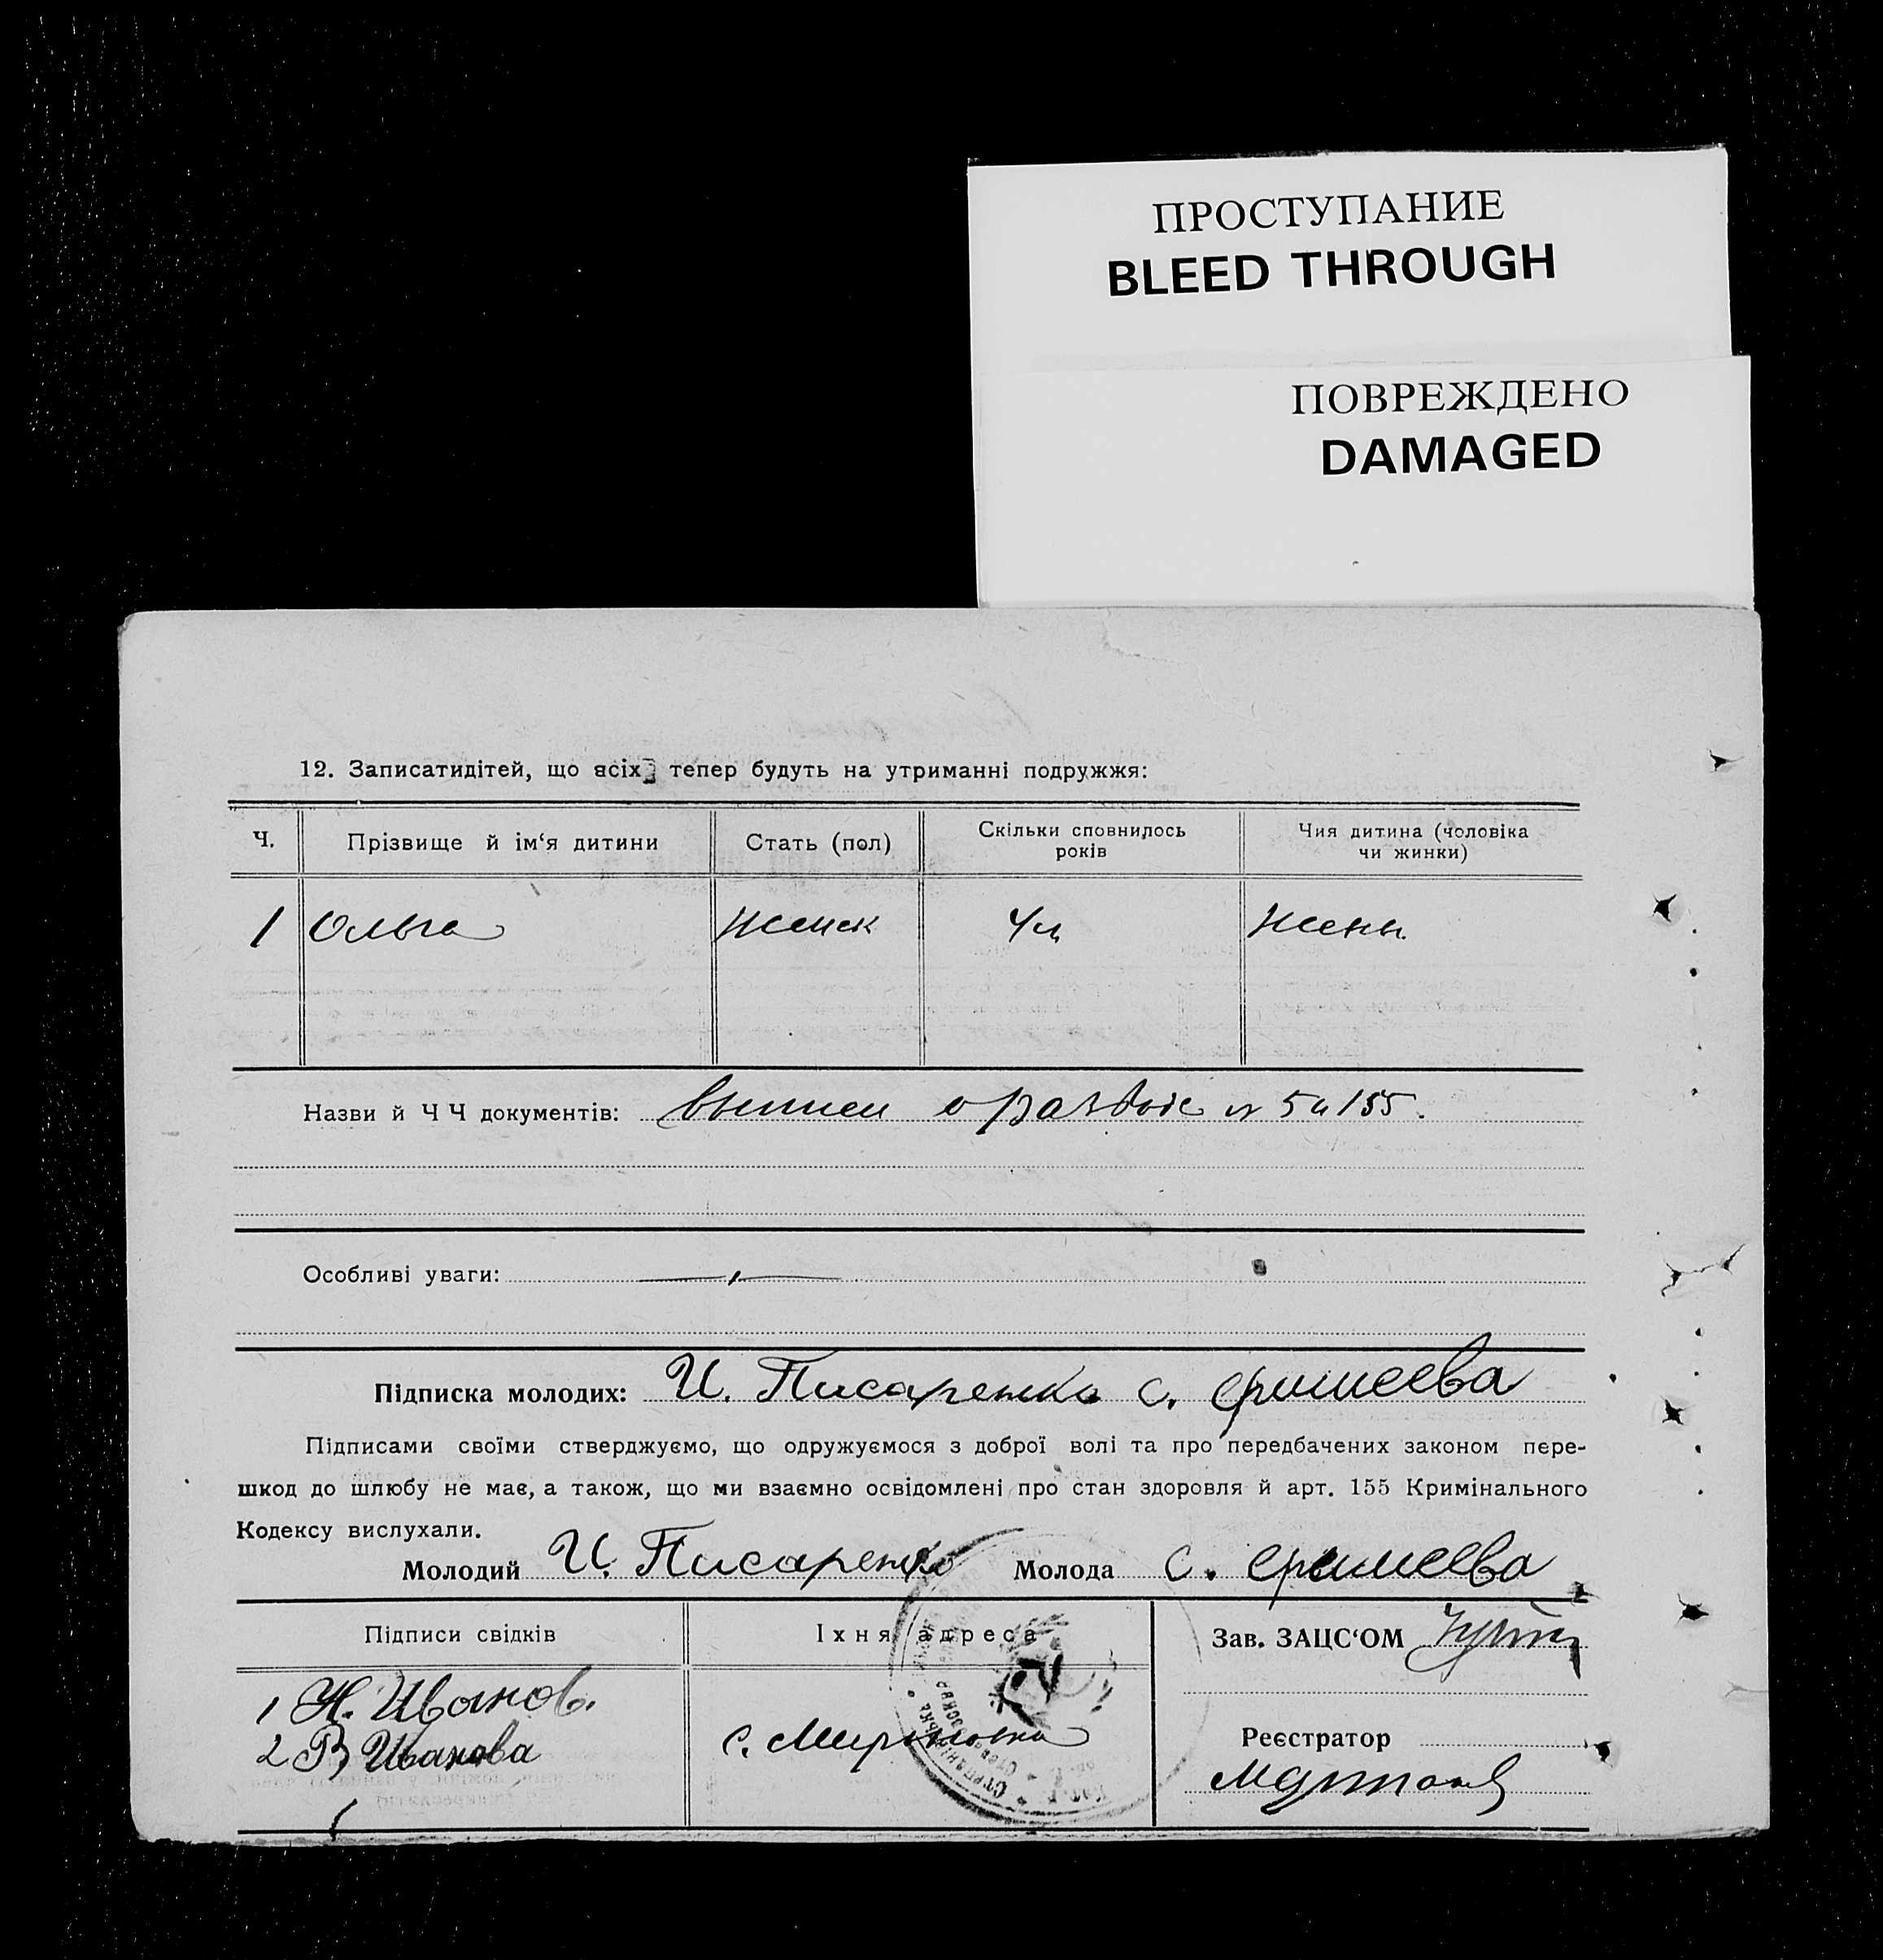 ПРОСТУПАНИЕ
BLEED THROUGH
ПОВРЕЖДЕНО
DAMAGED
12. Записатидітей, що всіх тепер будуть на утриманні подружжя:
Ч. Прізвище й ім‘я дитини Стать (пол) Скільки сповнилось років Чия дитина (чоловіка чи жинки)
1 Ольга женск 4 женн.
Назви й Ч Ч документів: о разводе №
Особливі уваги:
Підписка молодих: И. Писаренко С.
Підписами своїми стверджуємо, що одружуємося з доброї волі та про передбачених законом пере-
шкод до шлюбу не має, а також, що ми взаємно освідомлені про стан здоровля й арт. 155 Кримінального
Кодексу вислухали.
Молодий И. Писаренко Молода С.
Підписи свідків Їхня адреса Зав. ЗАЦС‘ОМ
1 Н. Иванов.
2 В Иванова с. Мироновка
Реєстратор